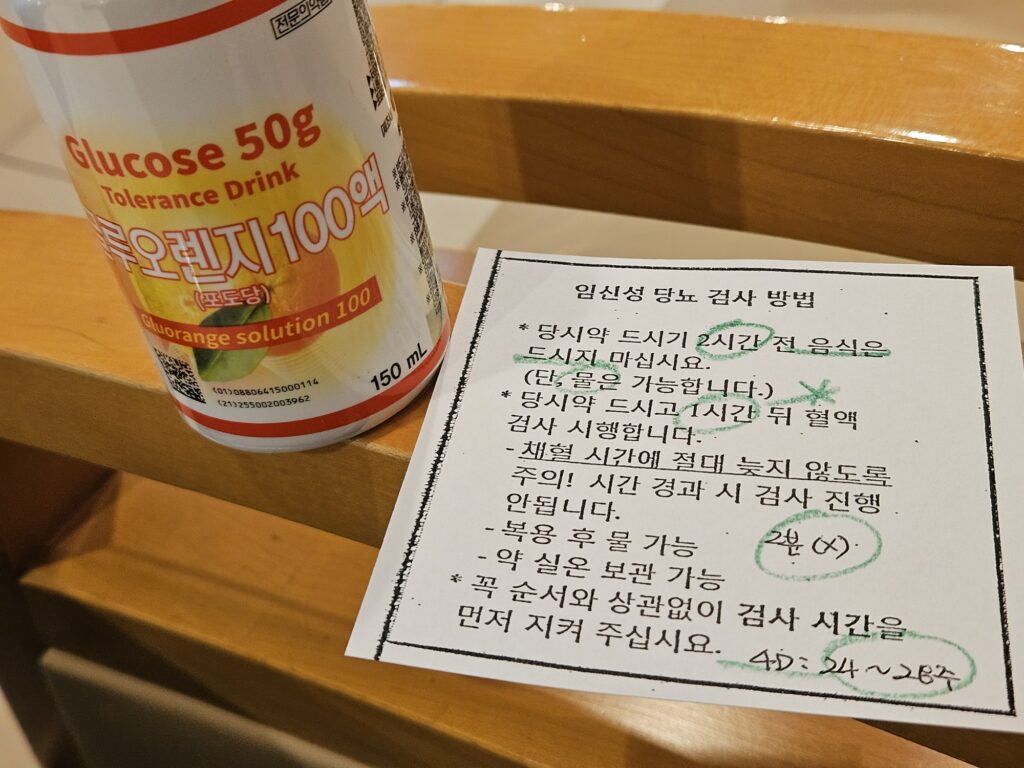 전문의약품
Glucose 50g
Tolerance Drink
루오렌지100액
(포도당)
Gluorange solution 100
(01)08806415000114
(21)255002003962
150 mL
임신성 당뇨 검사 방법
* 당시약 드시기 2시간 전 음식은
드시지 마십시요.
(단, 물은 가능합니다.)
* 당시약 드시고 1시간 뒤 혈액
검사 시행합니다.
- 채혈 시간에 절대 늦지 않도록
주의! 시간 경과 시 검사 진행
안됩니다.
- 복용 후 물 가능
2분(X)
- 약 실온 보관 가능
* 꼭 순서와 상관없이 검사 시간을
먼저 지켜 주십시요.
4D: 24~28주